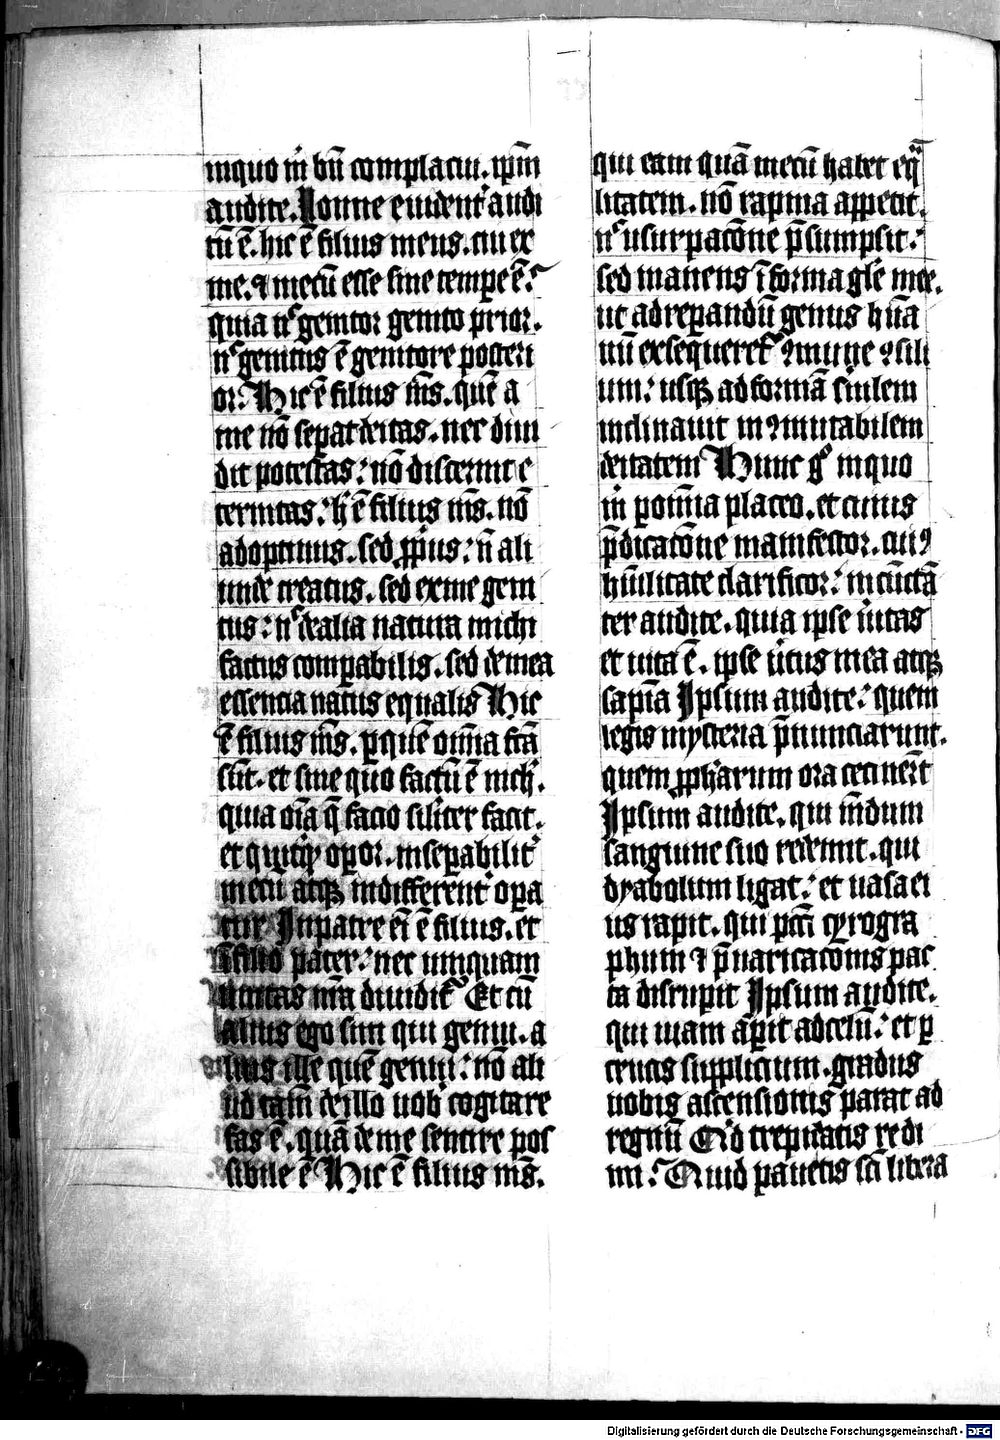 inquo m̄ bn̄ complacui. ip̄m
audite. Nonne euident᷑ audi
tū ē. hic ē filius meus. cui ex
me. ⁊ mecū esse sine tempe ē.
quia nᶜ genitor genito prior.
nᶜ genitus ē genitore posteri
or. Hic ē filius mēs. quē a
me nō sepat deitas. nec diui
dit potestas: nō discernit e
ternitas. hᷝ ē filius mēs. nō
adoptiuus. sed ꝓpius: n̄ ali
unde creatus. sed exme geni
tus: nᶜ dealia natura michi
factus compabilis. sed demea
essencia natus equalis Hic
ē filius mēs. ꝑquē om̄ia fc̄a
sūt. et sine quo factū ē nich.
quia oīa q̄ facio silīter facit.
et quicꝗd opor. insepabilit᷑
mecū atqꝫ indifferent᷑ opa
tur Inpatre eī ē filius. et
ī filio pater: nec umquam
unitas nr̄a diuidit᷑ Et cū
alius ego sim qui genui. a
lius ille quē genui: nō ali
ud tam̄ deillo uob cogitare
fas ē. quā deme sentire pos
sibile ē Hic ē filius mēs.
qui eam quā mecū habet eq̄
litatem. nō rapina appetit.
nᶜ usurpacōne p̄sumpsit.
sed manens ī forma glē mee.
ut adreparandū genus hūa
nū exsequeret᷑ ꝯmune ꝯsili
um: usqꝫ ad formā suilem
inclinauit inꝯmutabilem
deitatem Hunc gͦ inquo
m̄ pom̄ia placeo. et cuius
p̄dicacōne manifestor. cuiꝯ
hūilitate clarificor: incūctā
ter audite. quia ipse ūitas
et uita ē. ipse ūtus mea atqꝫ
sapīa Ipsum audite: quem
legis mysteria p̄nunciarunt.
quem ꝓph̄arum ora cecinert
Ipsum audite. qui mūdum
sanguine suo redemit. qui
dyabolum ligat: et uasa ei
us rapit. qui pcc̄i cyrogra
phum ⁊ p̄uaricacōnis pac
ta disrupit Ipsum audite.
qui uiam apit adcelū: et ꝑ
crucis supplicium. gradus
uobis ascensionis parat ad
regnū Qͥd trepidatis redi
mi: Quid pauetis sci libera
Digitalisierung gefördert durch die Deutsche Forschungsgemeinschaft - DFG